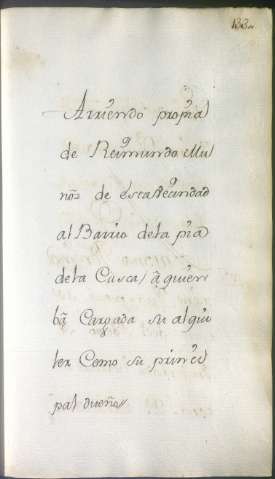 132
Arriendo propria
de Reimundo Mu
ños de esta Vecindad
al Barrio de la pza
de la Casca, á quien
ba Cargada su alqui
ler Como su princi
pal dueño